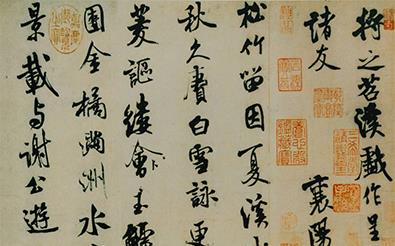 將之苕溪戲作呈
諸友　襄陽
松竹留因夏溪山
秋久賡白雪詠更
菱謳縷會玉鱸
團金橘滿洲水宮
景載與謝公遊